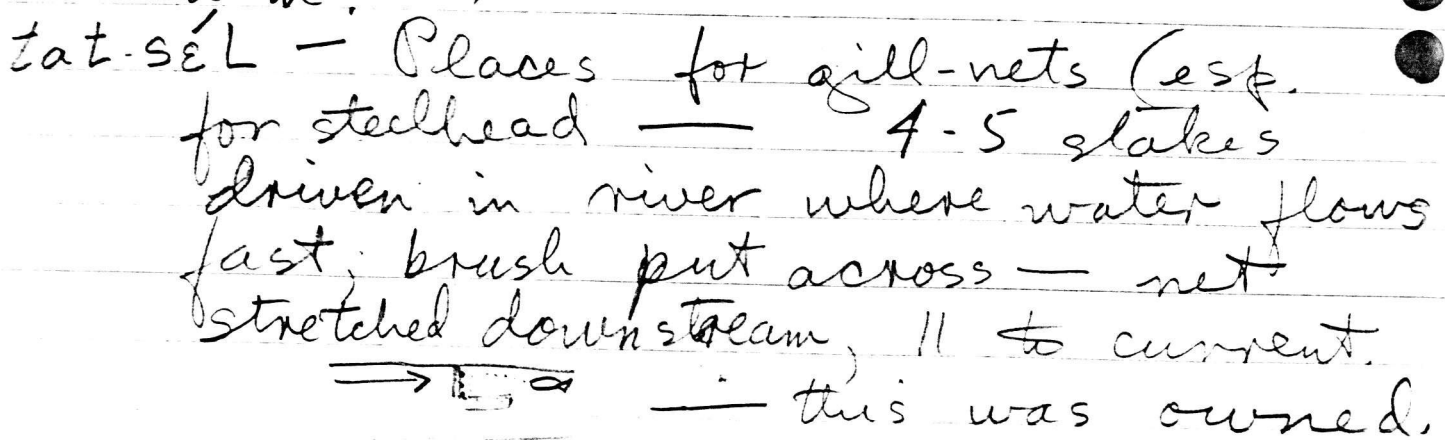 tat-sɛ́L — Places for gill-nets (esp.
for steelhead — 4-5 stakes
driven in river where water flows
fast; brush put across — net
stretched downstream, || to current.
— this was owned.